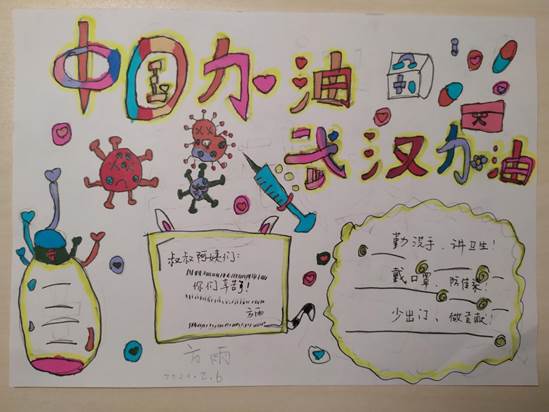 中国加油
武汉加油
叔叔阿姨们:
你们辛苦了!
方雨
勤洗手、讲卫生!
戴口罩、防传染!
少出门、做贡献!
方雨
2020.2.6